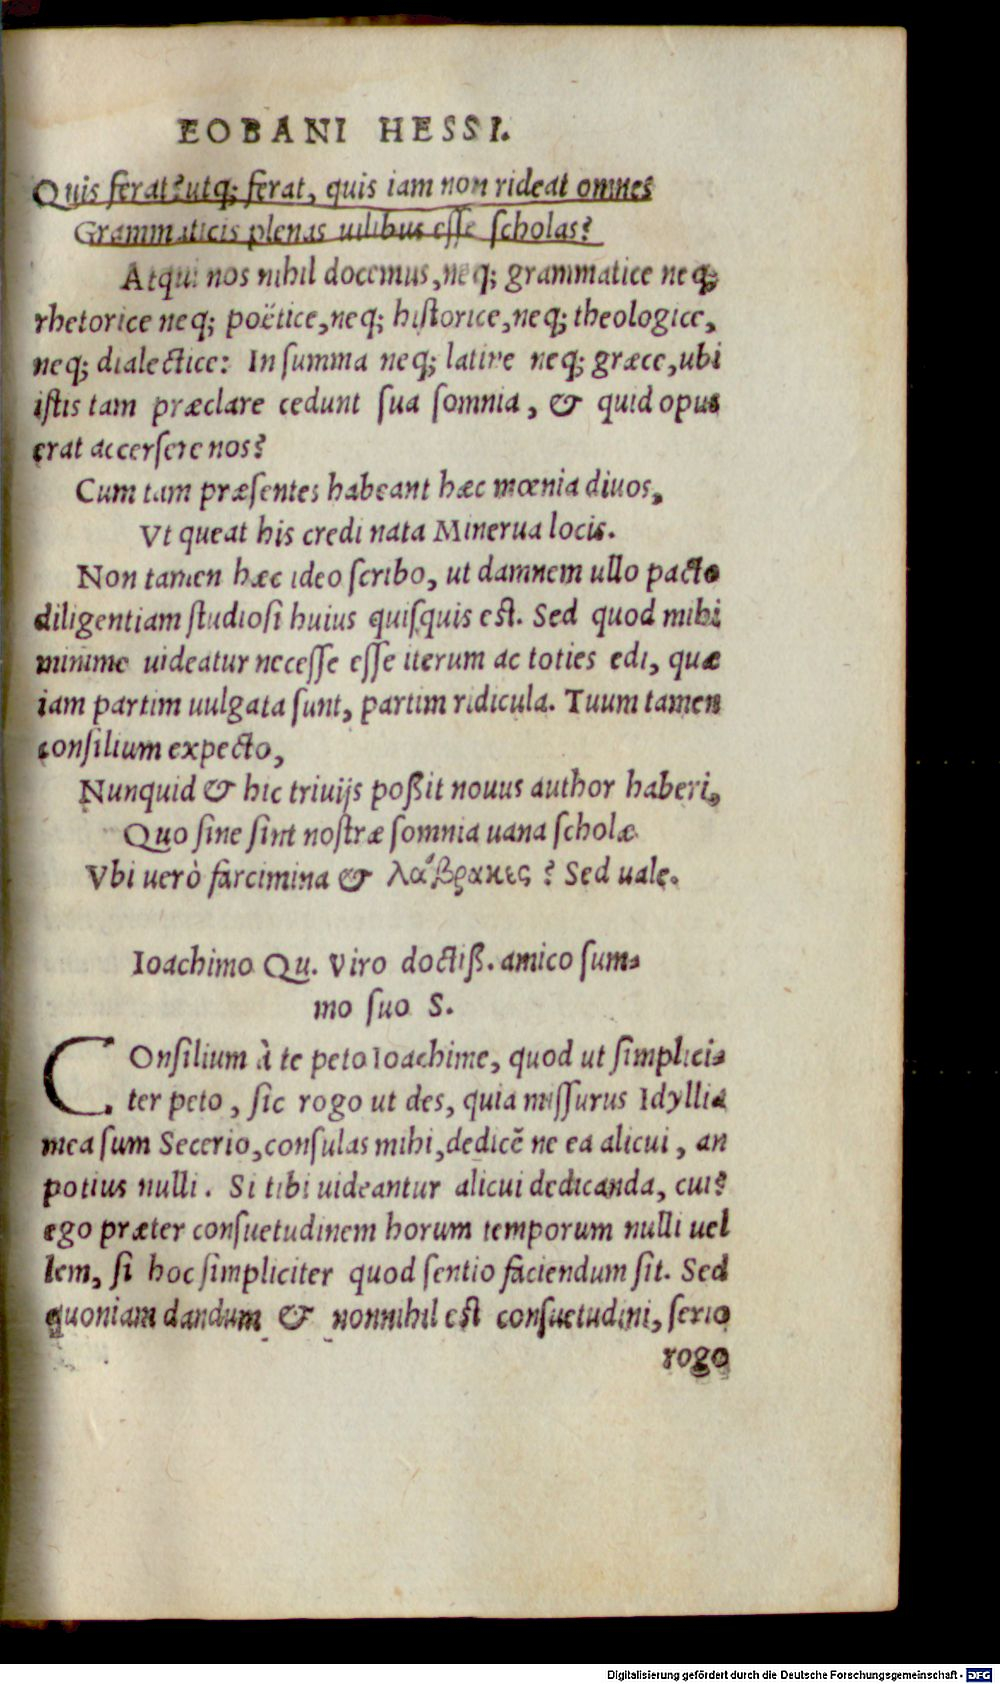 EOBANI HESSI.
Quis ferat? utq; ferat, quis iam non rideat omnes
Grammaticis plenas uilibus esse scholas?
Atqui nos nihil docemus, neq; grammatice neq;
rhetorice neq; poëtice, neq; historice, neq; theologice,
neq; dialectice: In summa neq; latine neq; græce, ubi
istis tam præclare cedunt sua somnia, & quid opus
erat accersere nos?
Cum tam præsentes habeant hæc mœnia diuos,
Vt queat his credi nata Minerua locis.
Non tamen hæc ideo scribo, ut damnem ullo pacto
diligentiam studiosi huius quisquis est. Sed quod mihi
minime uideatur necesse esse iterum ac toties edi, quæ
iam partim uulgata sunt, partim ridicula. Tuum tamen
consilium expecto,
Nunquid & hic triuijs poßit nouus author haberi,
Quo sine sint nostræ somnia uana scholæ
Vbi uerò farcimina & λάβρακες? Sed uale.
Ioachimo Qu. Viro doctiß. amico sum-
mo suo S.
COnsilium à te peto Ioachime, quod ut simplici-
ter peto, sic rogo ut des, quia missurus Idyllia
mea sum Secerio, consulas mihi, dedicẽ ne ea alicui, an
potius nulli. Si tibi uideantur alicui dedicanda, cui?
ego præter consuetudinem horum temporum nulli uel
lem, si hoc simpliciter quod sentio faciendum sit. Sed
quoniam dandum & nonnihil est consuetudini, serio
rogo
Digitalisierung gefördert durch die Deutsche Forschungsgemeinschaft - DFG